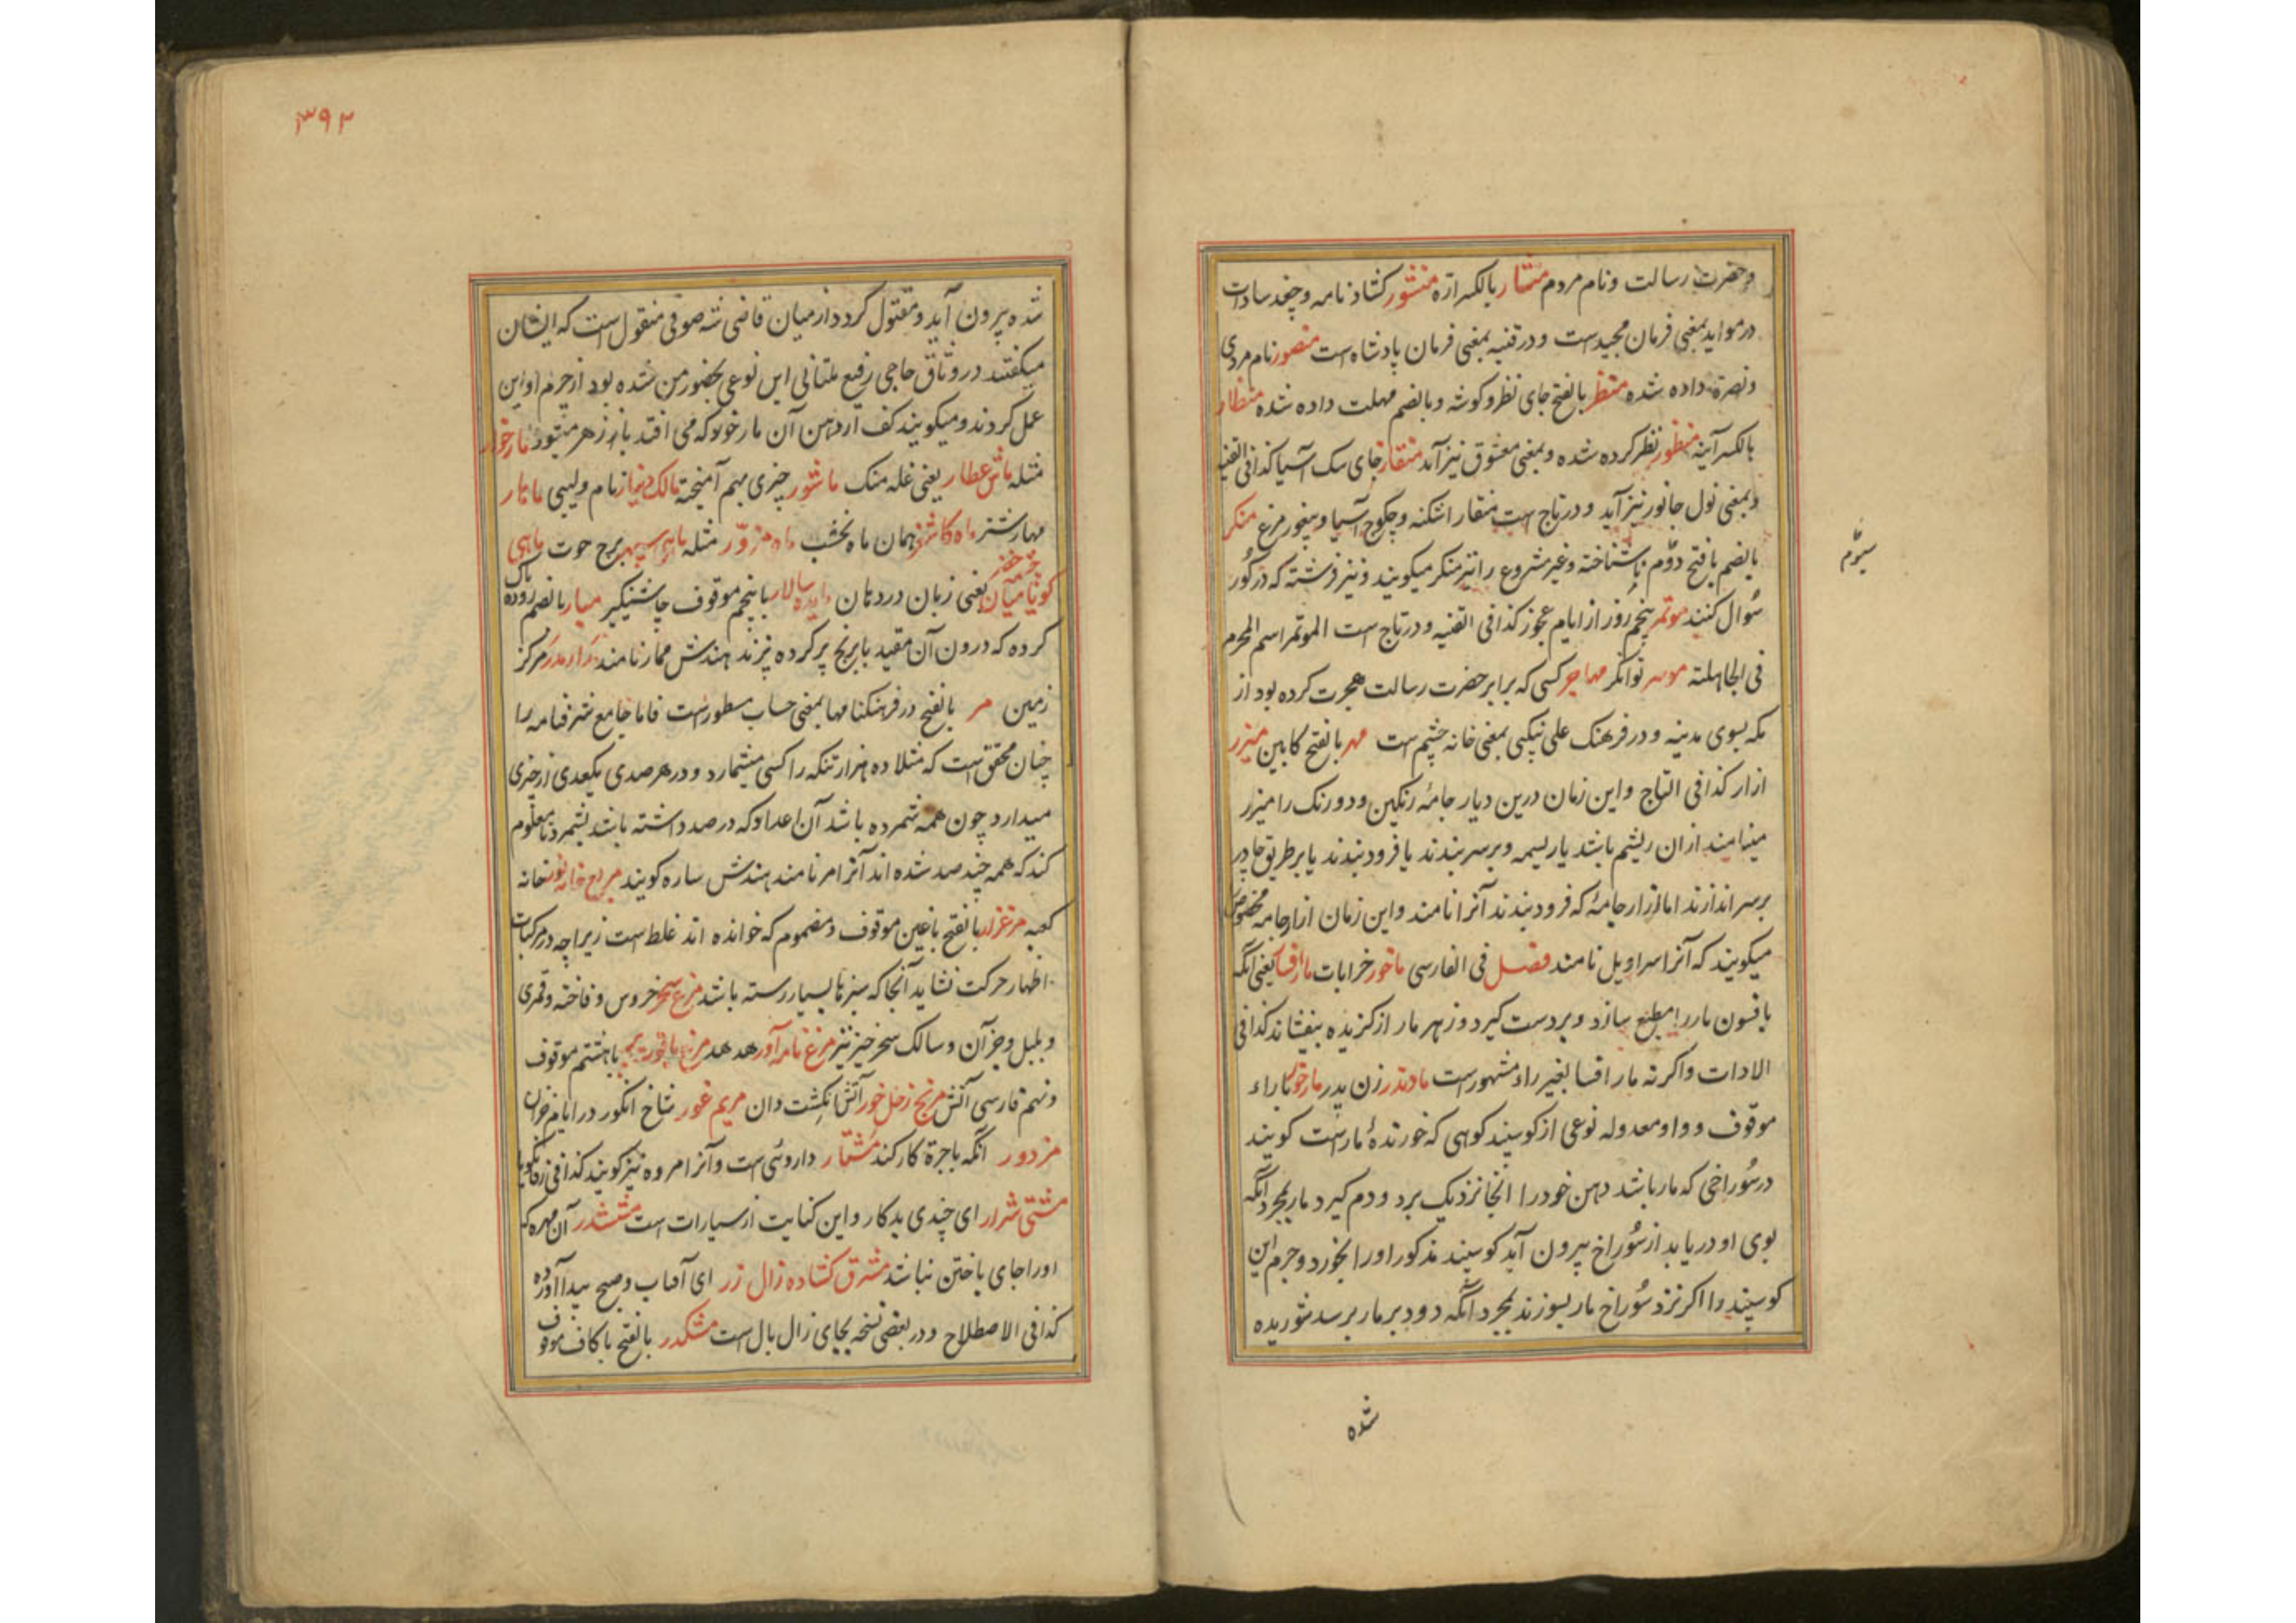 وحضرت رسالت ونام مردم منشار بالکسر ازه منشور کشاد نامه و چغد سادات
درمواید بمعنی فرمان مجیدست ودر قنیه بمعنی فرمان پادشاه است منصور نام مردی
ونصرة داده شده منظر بالفتح جای نظر وکوشه وبالضم مهلت داده شده منظار
بالکسر آینه منظور نظر کرده شده وبمعنی معشوق نیز آید منقار جای سک آسیا کذا فی القنیه
وبمعنی نول جانور نیز آید ودر تاج است منقار اشکنه و چکوج آسیا و پیغور مرغ منکر
بالضم بافتح دوّم ناشناخته وغیر مشروع را نیز منکر میکویند ونیز فرشته که در کور
سیوّم
سُوال کنند موتمر پنجم روز از ایام عجوز کذا فی القنیه ودر تاج است الموتمر اسم المحرم
فی الجاهلته موسر توانکر مهاجر کسی که برابر حضرت رسالت هجرت کرده بود از
مکه بسوی مدینه ودر فرهنک علی نیکبی بمعنی خانه چشم است مهر بالفتح کابین میزر
ازار کذا فی التاج واین زمان درین دیار جامهٔ رنکین ودورنک را میزر
مینامند ازان ریشم باشد یا ریسمه وبرسر بندند یا فرود بندند یا بر طریق چادر
برسر اندازند اما ازار جامهٔ که فرود بندند آنرا نامند واین زمان ازار جامه مخصوص
میکویند که آنرا سراویل نامند فصل فی الفارسی ماخور خرابات مارافسا یعنی آنکه
بافسون مار را مطیع سازد وبردست کیرد وزهر مار از کزیده بنفشاند کذا فی
الادات واکرنه مار افسا بغیر راء مشهورست مادندر زن پدر مارخوار باراء
موقوف وواو معدوله نوعی از کوسپند کوهی که خورندهٔ مارست کویند
در سُوراخی که مار باشد دهن خود را آنجا نزدیک برد ودم کیرد مار بمجرد آنکه
بوی او دریابد از سُوراخ بیرون آید کوسپند مذکور اورا بخورد وچرم این
کوسپند را اکر نزد سُوراخ مار بسوزند بمجرد آنکه دود بر مار برسد شوریده
شده
۳۹۲
شده بیرون آید ومقتول کردد از میان قاضی شه صوفی منقول است که ایشان
میکفتند در وثاق حاجی رفیع ملتانی این نوعی بحضور من شده بود از چرم او این
عمل کردند ومیکویند کف از دهن آن مارخوار که می افتد پازهر میشود مارخور
مثله ماش عطار یعنی غله منک ماشور چیزی بهم آمیخته مالک دینار نام ولیی ماهار
مهار شتر ماه کاشغر همان ماه نخشب ماه مزوّر مثله ماهی سپهر برج حوت ماهی
کوثا میان یعنی زبان در دهان مایده سالار با پنجم موقوف چاشنیکیر مبار بالضم روده پاک
کرده که درون آن مقید با برنج پر کرده پزند هندش ممار نامند مدار مدر مرکز
زمین مر بالفتح در فرهنکنامها بمعنی حساب مسطورست فاما جامع شرفنامه را
چنان محقق است که مثلا ده هزار تنکه را کسی میشمارد ودر هر صدی یکعدی از چیزی
میدارد چون همه شمرده باشد آن اعداد که در صد داشته باشد بشمرد تا معلوم
کند که همه چند صد شده اند آنرا مر نامند هندش ساره کویند مربع خانه نور خانه
کعبه مرغزار بالفتح باغین موقوف ومضموم که خوانده اند غلط است زیراچه در مرکبات
اظهار حرکت نشاید آنجا که سبزها بسیار رسته باشد مرغ سحر خروس وفاخته وقمری
وبلبل وجز آن وسالک سحر خیز نیز مرغ نامه آور هدهد باهشتم موقوف
ونهم فارسی آتش مریخ زحل خور آتش انکشت دان مریم عور شاخ انکور در ایام خزان
مزدور آنکه باجرة کار کند مُشتار داروئی است وآنرا مروه نیز کویند کذا فی
مشتی شرار ای چندی بدکار واین کنایت از سیارات است مششدر آن مهره که
اورا جای باختن نباشد مشرق کشاده زال زر ای آفتاب وصبح پیدا آورده
کذا فی الاصطلاح ودر بعضی نسخه بجای زال بال است مشکدر بالفتح باکاف موقوف